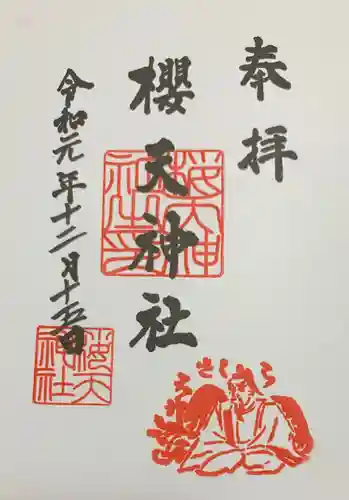 奉拝
櫻天神社
令和元年十二月十五日
櫻天神社印
櫻天神社